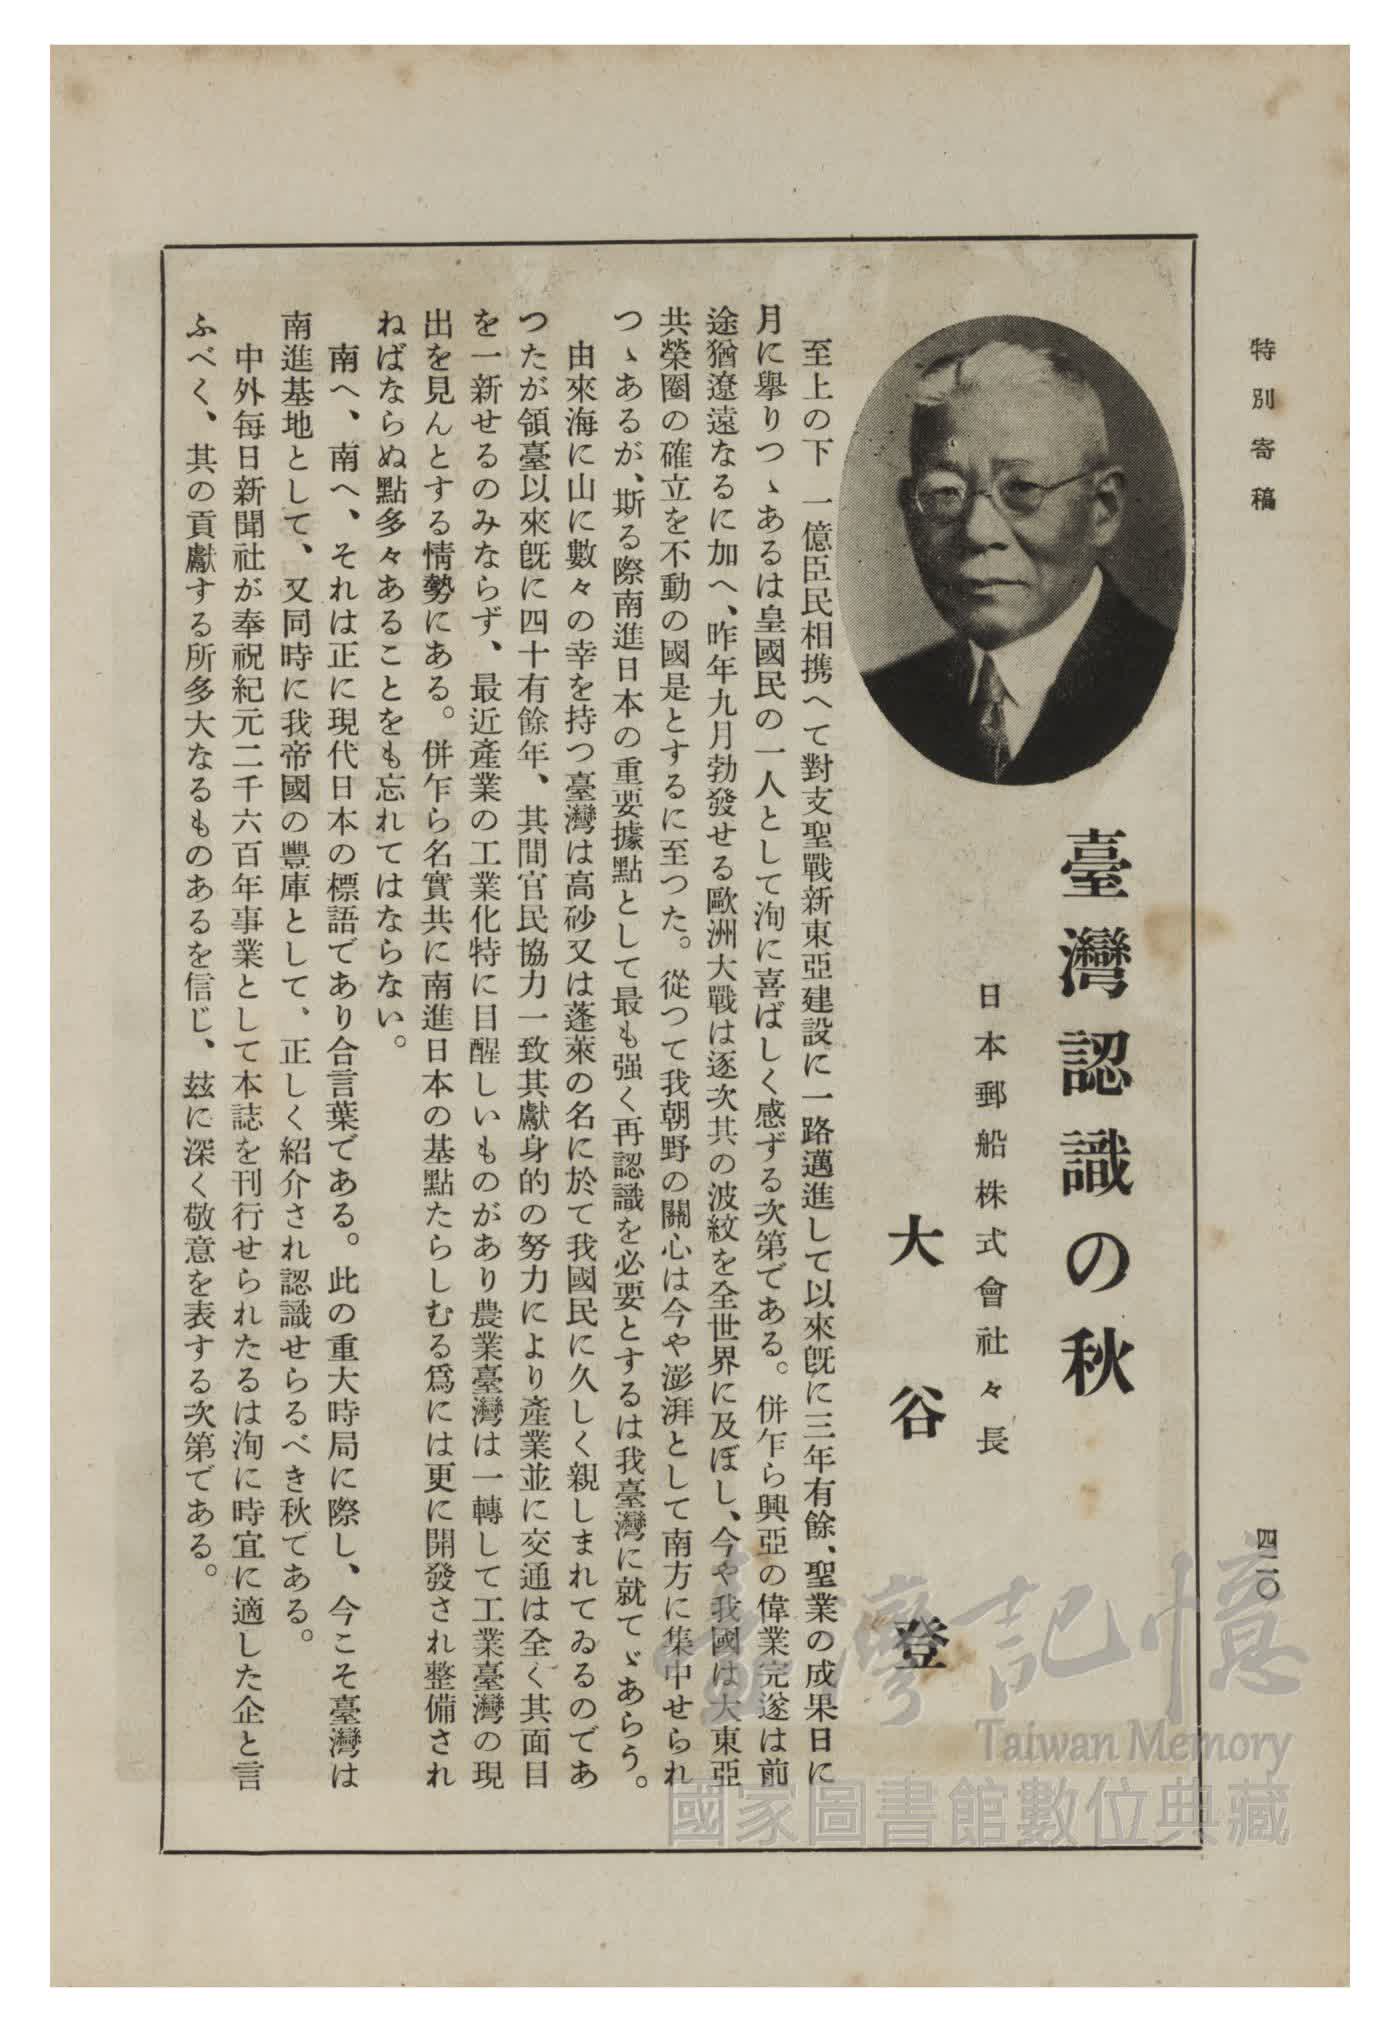 特別寄稿
四二〇
臺灣認識の秋
日本郵船株式會社々長
大谷登
至上の下 一億臣民相携へて對支聖戰新東亞建設に一路邁進して以來旣に三年有餘、聖業の成果日に
月に擧りつゝあるは皇國民の一人として洵に喜ばしく感ずる次第である。併乍ら興亞の偉業完遂は前
途猶遼遠なるに加へ、昨年九月勃發せる歐洲大戰は逐次其の波紋を全世界に及ぼし、今や我國は大東亞
共榮圈の確立を不動の國是とするに至つた。從つて我朝野の關心は今や澎湃として南方に集中せられ
つゝあるが、斯る際南進日本の重要據點として最も强く再認識を必要とするは我臺灣に就てゞあらう。
由來海に山に數々の幸を持つ臺灣は高砂又は蓬萊の名に於て我國民に久しく親しまれてゐるのであ
つたが領臺以來旣に四十有餘年、其間官民協力一致其獻身的の努力により產業並に交通は全く其面目
を一新せるのみならず、最近產業の工業化特に目醒しいものがあり農業臺灣は一轉して工業臺灣の現
出を見んとする情勢にある。併乍ら名實共に南進日本の基點たらしむる爲には更に開發され整備され
ねばならぬ點多々あることをも忘れてはならない。
南へ、南へ、それは正に現代日本の標語であり合言葉である。此の重大時局に際し、今こそ臺灣は
南進基地として、又同時に我帝國の豐庫として、正しく紹介され認識せらるべき秋である。
中外每日新聞社が奉祝紀元二千六百年事業として本誌を刊行せられたるは洵に時宜に適した企と言
ふべく、其の貢獻する所多大なるものあるを信じ、玆に深く敬意を表する次第である。
臺灣記憶
Taiwan Memory
國家圖書館數位典藏